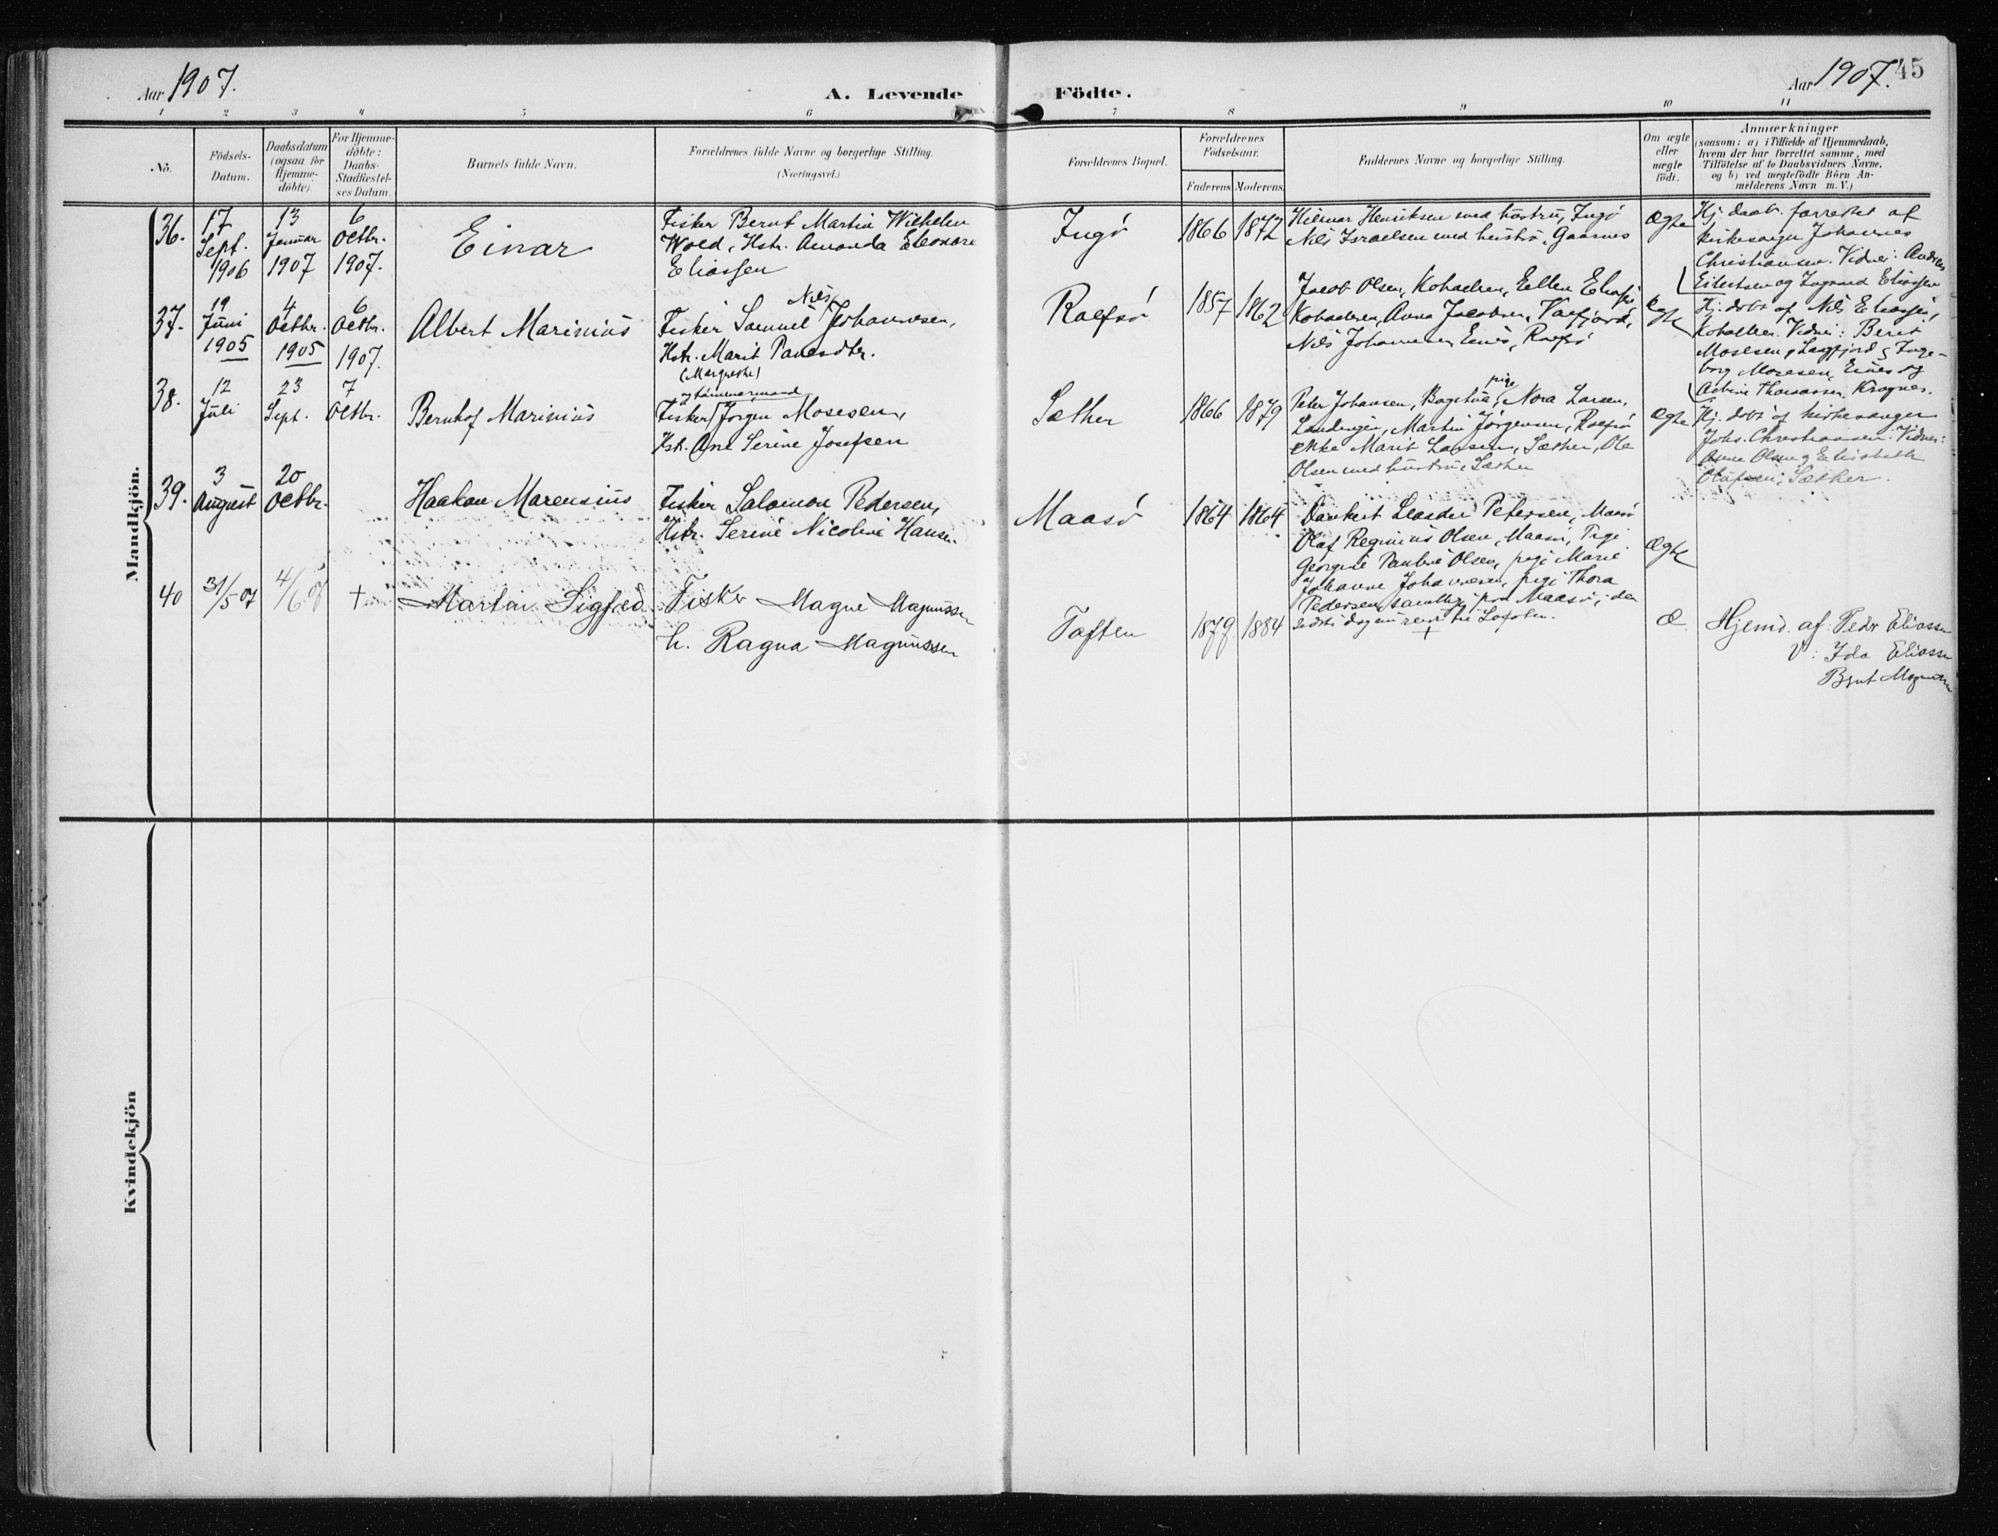 Aar 1907.
A. Levende Födte.
Aar 1907. 45
1 2 3 4 5 6 7 8 9 10 11
No.
Födsels-
Datum.
Daabsdatum
(ogsaa for
Hjemme-
döbte).
For Hjemme-
döbte:
Daabs-
Stadfestel-
ses Datum.
Barnets fulde Navn.
Forældrenes fulde Navne og borgerlige Stilling.
(Næringsvei.)
Forældrenes Bopæl.
Forældrenes
Födselsaar.
Faderens Moderens
Faddernes Navne og borgerlige Stilling.
Om ægte
eller
uægte
födt.
Anmærkninger
(saasom: a) i Tilfælde af Hjemmedaab,
hvem der har forrettet samme, med
Tilföielse af to Daabsvidners Navne,
og b) ved uægtefödte Börn An-
melderens Navn m. V.)
Mandkjön.
36.
17
Sept.
1906
13
Januar
1907
6
Octbr.
1907.
Einar
Fisker Bernt Martin Wilhelm
Wold, Hstr. Amanda Eleonore
Eliassen
Ingø
1866 1872
Hilmar Henriksen med hustru, Ingø
Nils Israelsen med hustru, Gaasnes
Ægte
Hj. daab forrettet af
kirkesanger Johannes
Christiansen. Vidner: Andreas
Eilertsen og Ingvard Eliassen
37.
19
Juni
1905
4
Octbr.
1905
6
Octbr.
1907.
Albert Marinius
Nils
Fisker Samuel Johannesen,
Hstr. Marit Paulsdtr.
(Margrethe)
Rolfsø
1857 1862
Jacob Olsen, Kobachen, Ellen Eliassen
Kobachen, Anna Jacobsen, Valfjord,
Nils Johannesen, Eines, Rolfsø
Ægte
Hj. døbt af Nils Eliassen,
Kobachen. Vidner: Berit
Mosesen, Langfjord & Inge-
borg Mosesen, Eines og
Thomassen, Krognes.
38.
12
Juli
23
Sept.
7
Octbr.
Bernhof Marinius
og tømmermand
Fisker Jørgen Mosesen,
Hstr. Ane Serine Josefsen
Sæther
1866 1879
Peter Johansen, pige Nora Larsen,
Martin Jørgensen, Rolfsø
enke Marit Larsen, Sæther, Ole
Olsen med hustru, Sæther
Ægte
Hj. døbt af kirkesanger
Johs. Christiansen. Vidner:
Anne Olsen & Elisabeth
Olufsen, Sæther.
39.
3
August
20
Octbr.
Haakon Marensius
Fisker Salomon Pedersen,
Hstr. Serine Nicoline Hansen
Maasø
1864 1864
Dankert Leander Petersen, Maasø
Olaf Reginius Olsen, Maasø, Pige
Georgine Pauline Olsen, pige Marie
Johanne Johannesen, pige Thora
Pedersen, samtlige paa Maasø, den
Ægte
40
31/5 07
4/6 07
+
Martin Sigfred
Fisker Magne Magnussen
h. Ragna Magnussen
Toften
1879 1884
+
Æ.
Hjemd. af Peder Eliassen
V: Ida Eliassen
Bernt Magnussen
Kvindekjön